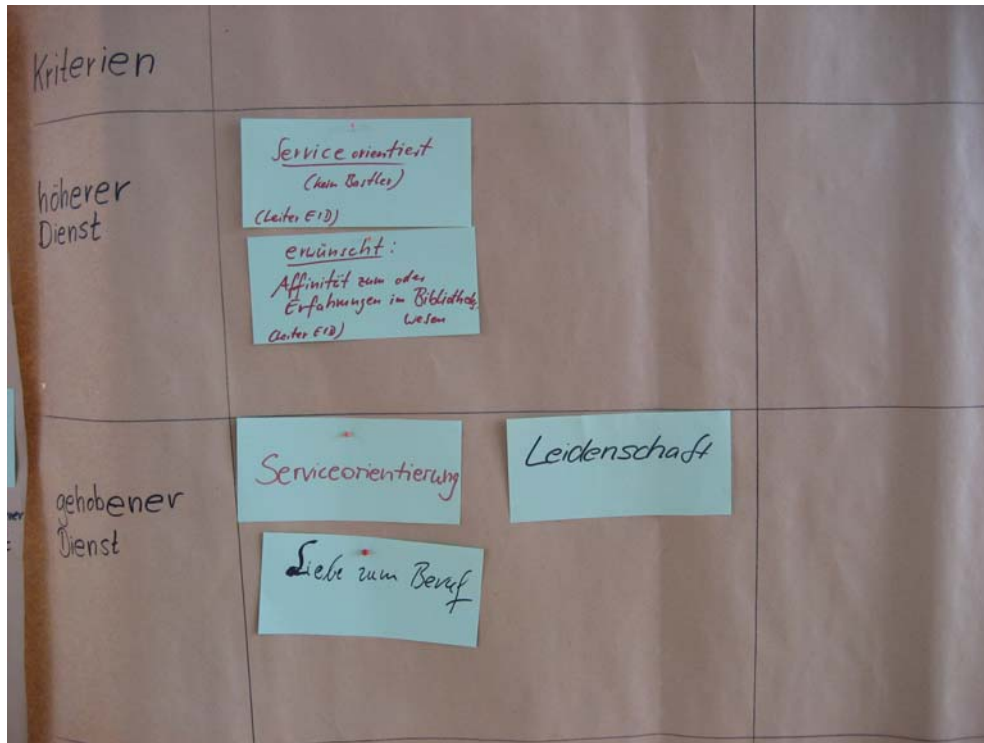 Kriterien
höherer
Dienst
Service orientiert
(kein Bastler)
(Leiter EID)
erwünscht:
Affinität zum oder
Erfahrungen im Bibliotheks
wesen
(Leiter EID)
gehobener
Dienst
Serviceorientierung
Leidenschaft
Liebe zum Beruf